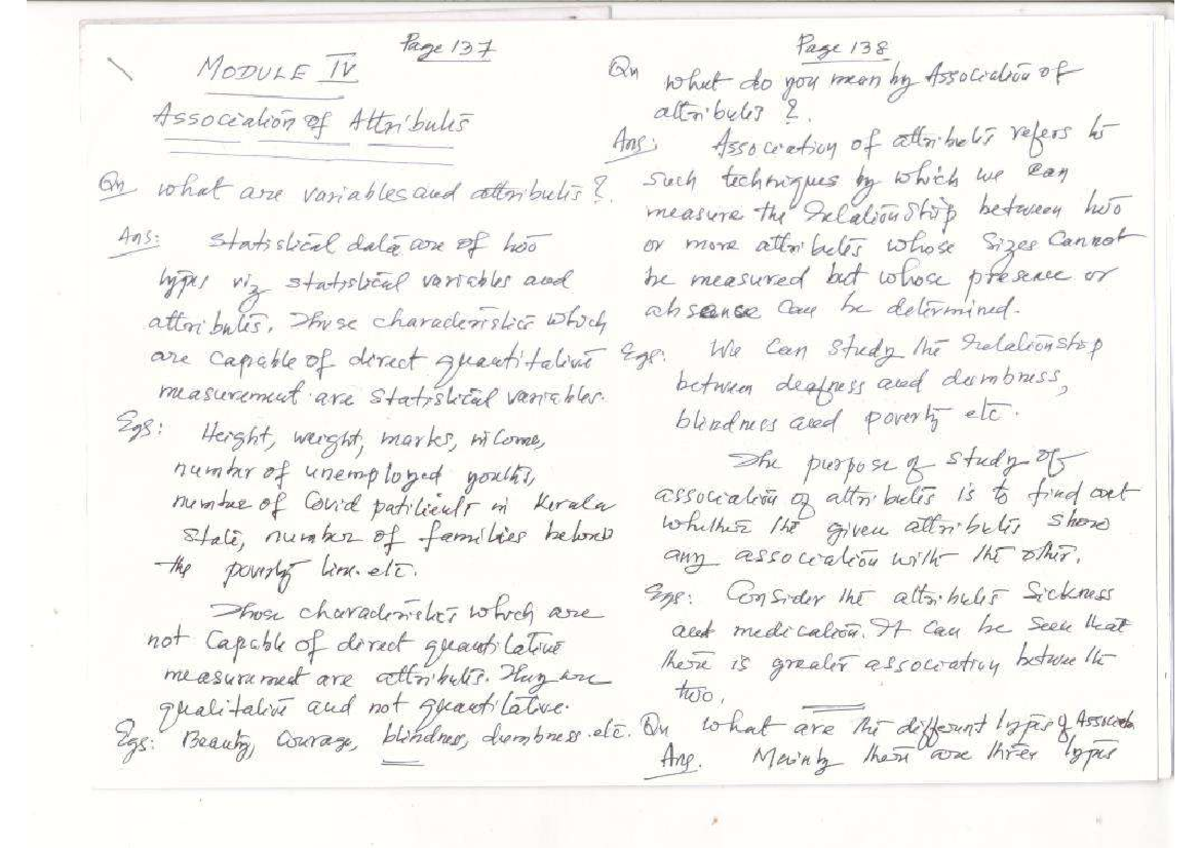 Page 137
MODULE IV
Association of Attributes
Qn what are variables and attributes?
Ans: Statistical data are of two
types viz statistical variables and
attributes. Those characteristics which
are capable of direct quantitative
measurement are statistical variables.
Egs: Height, weight, marks, income,
number of unemployed youths,
number of Covid patitients in Kerala
State, number of families below
the poverty line. etc.
Those characteristics which are
not capable of direct quantitative
measurement are attributes. They are
qualitative and not quantitative.
Egs: Beauty, Courage, blindness, dumbness. etc.
Page 138
Qn what do you mean by Association of
attributes?
Ans: Association of attributes refers to
such techniques by which we can
measure the relationship between two
or more attributes whose sizes cannot
be measured but whose presence or
absence can be determined.
Egs: We can study the relationship
between deafness and dumbness,
blindness and poverty etc.
The purpose of study of
association of attributes is to find out
whether the given attributes show
any association with the other.
Egs: Consider the attributes Sickness
and medication. It can be seen that
there is greater association between the
two.
Qn what are the different types of
Ans. Mainly there are three types